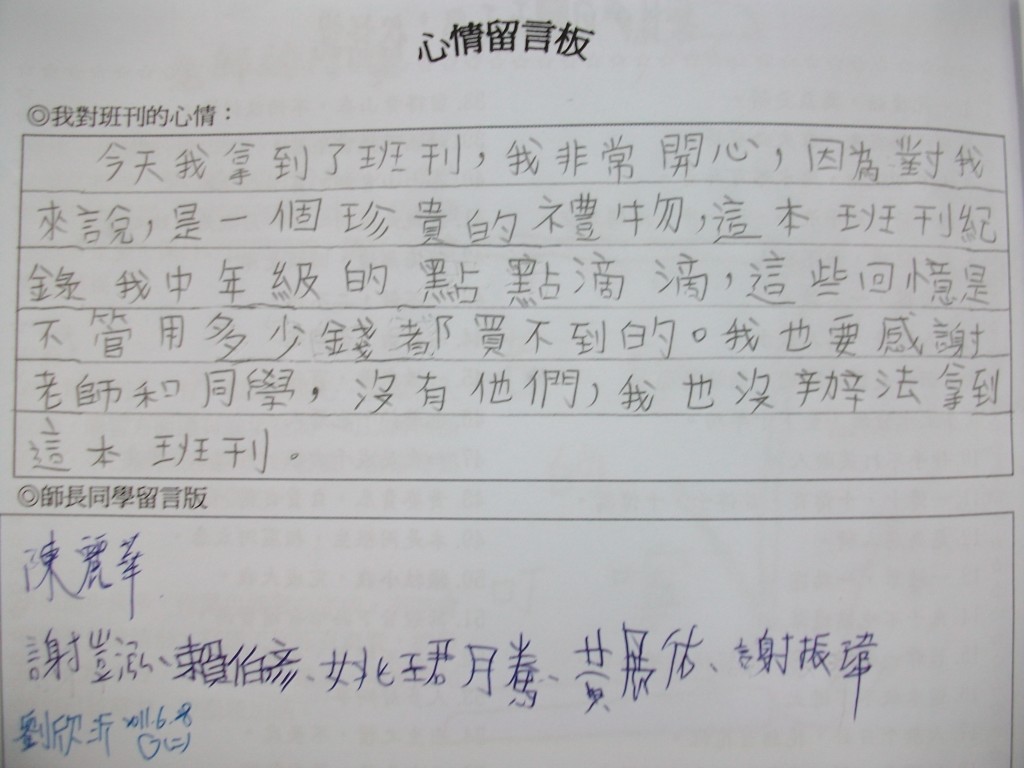 心情留言板
◎我對班刊的心情：
今天我拿到了班刊，我非常開心，因為對我
來說，是一個珍貴的禮物，這本班刊紀
錄我中年級的點點滴滴，這些回憶是
不管用多少錢都買不到的。我也要感謝
老師和同學，沒有他們，我也沒辦法拿到
這本班刊。
◎師長同學留言版
陳麗華
謝豈泓、賴伯彥、姚珺月騫、黃展佑、謝振瑋
劉欣沂 2011.6.8
(二)